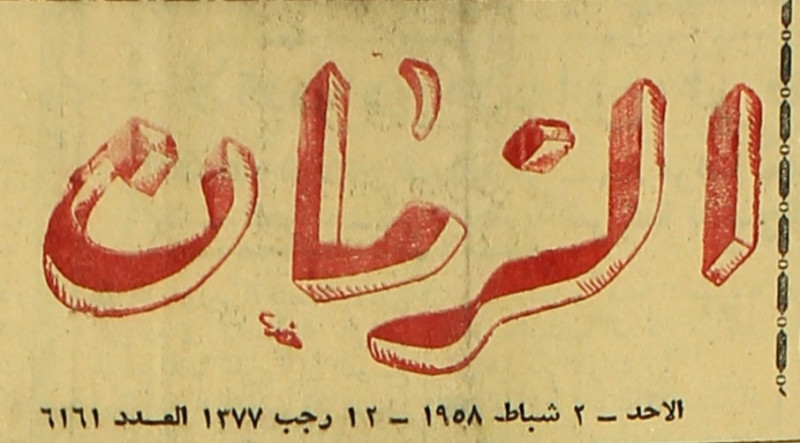 الزمان
الاحد - ٢ شباط ١٩٥٨ - ١٢ رجب ١٣٧٧ العدد ٦١٦١